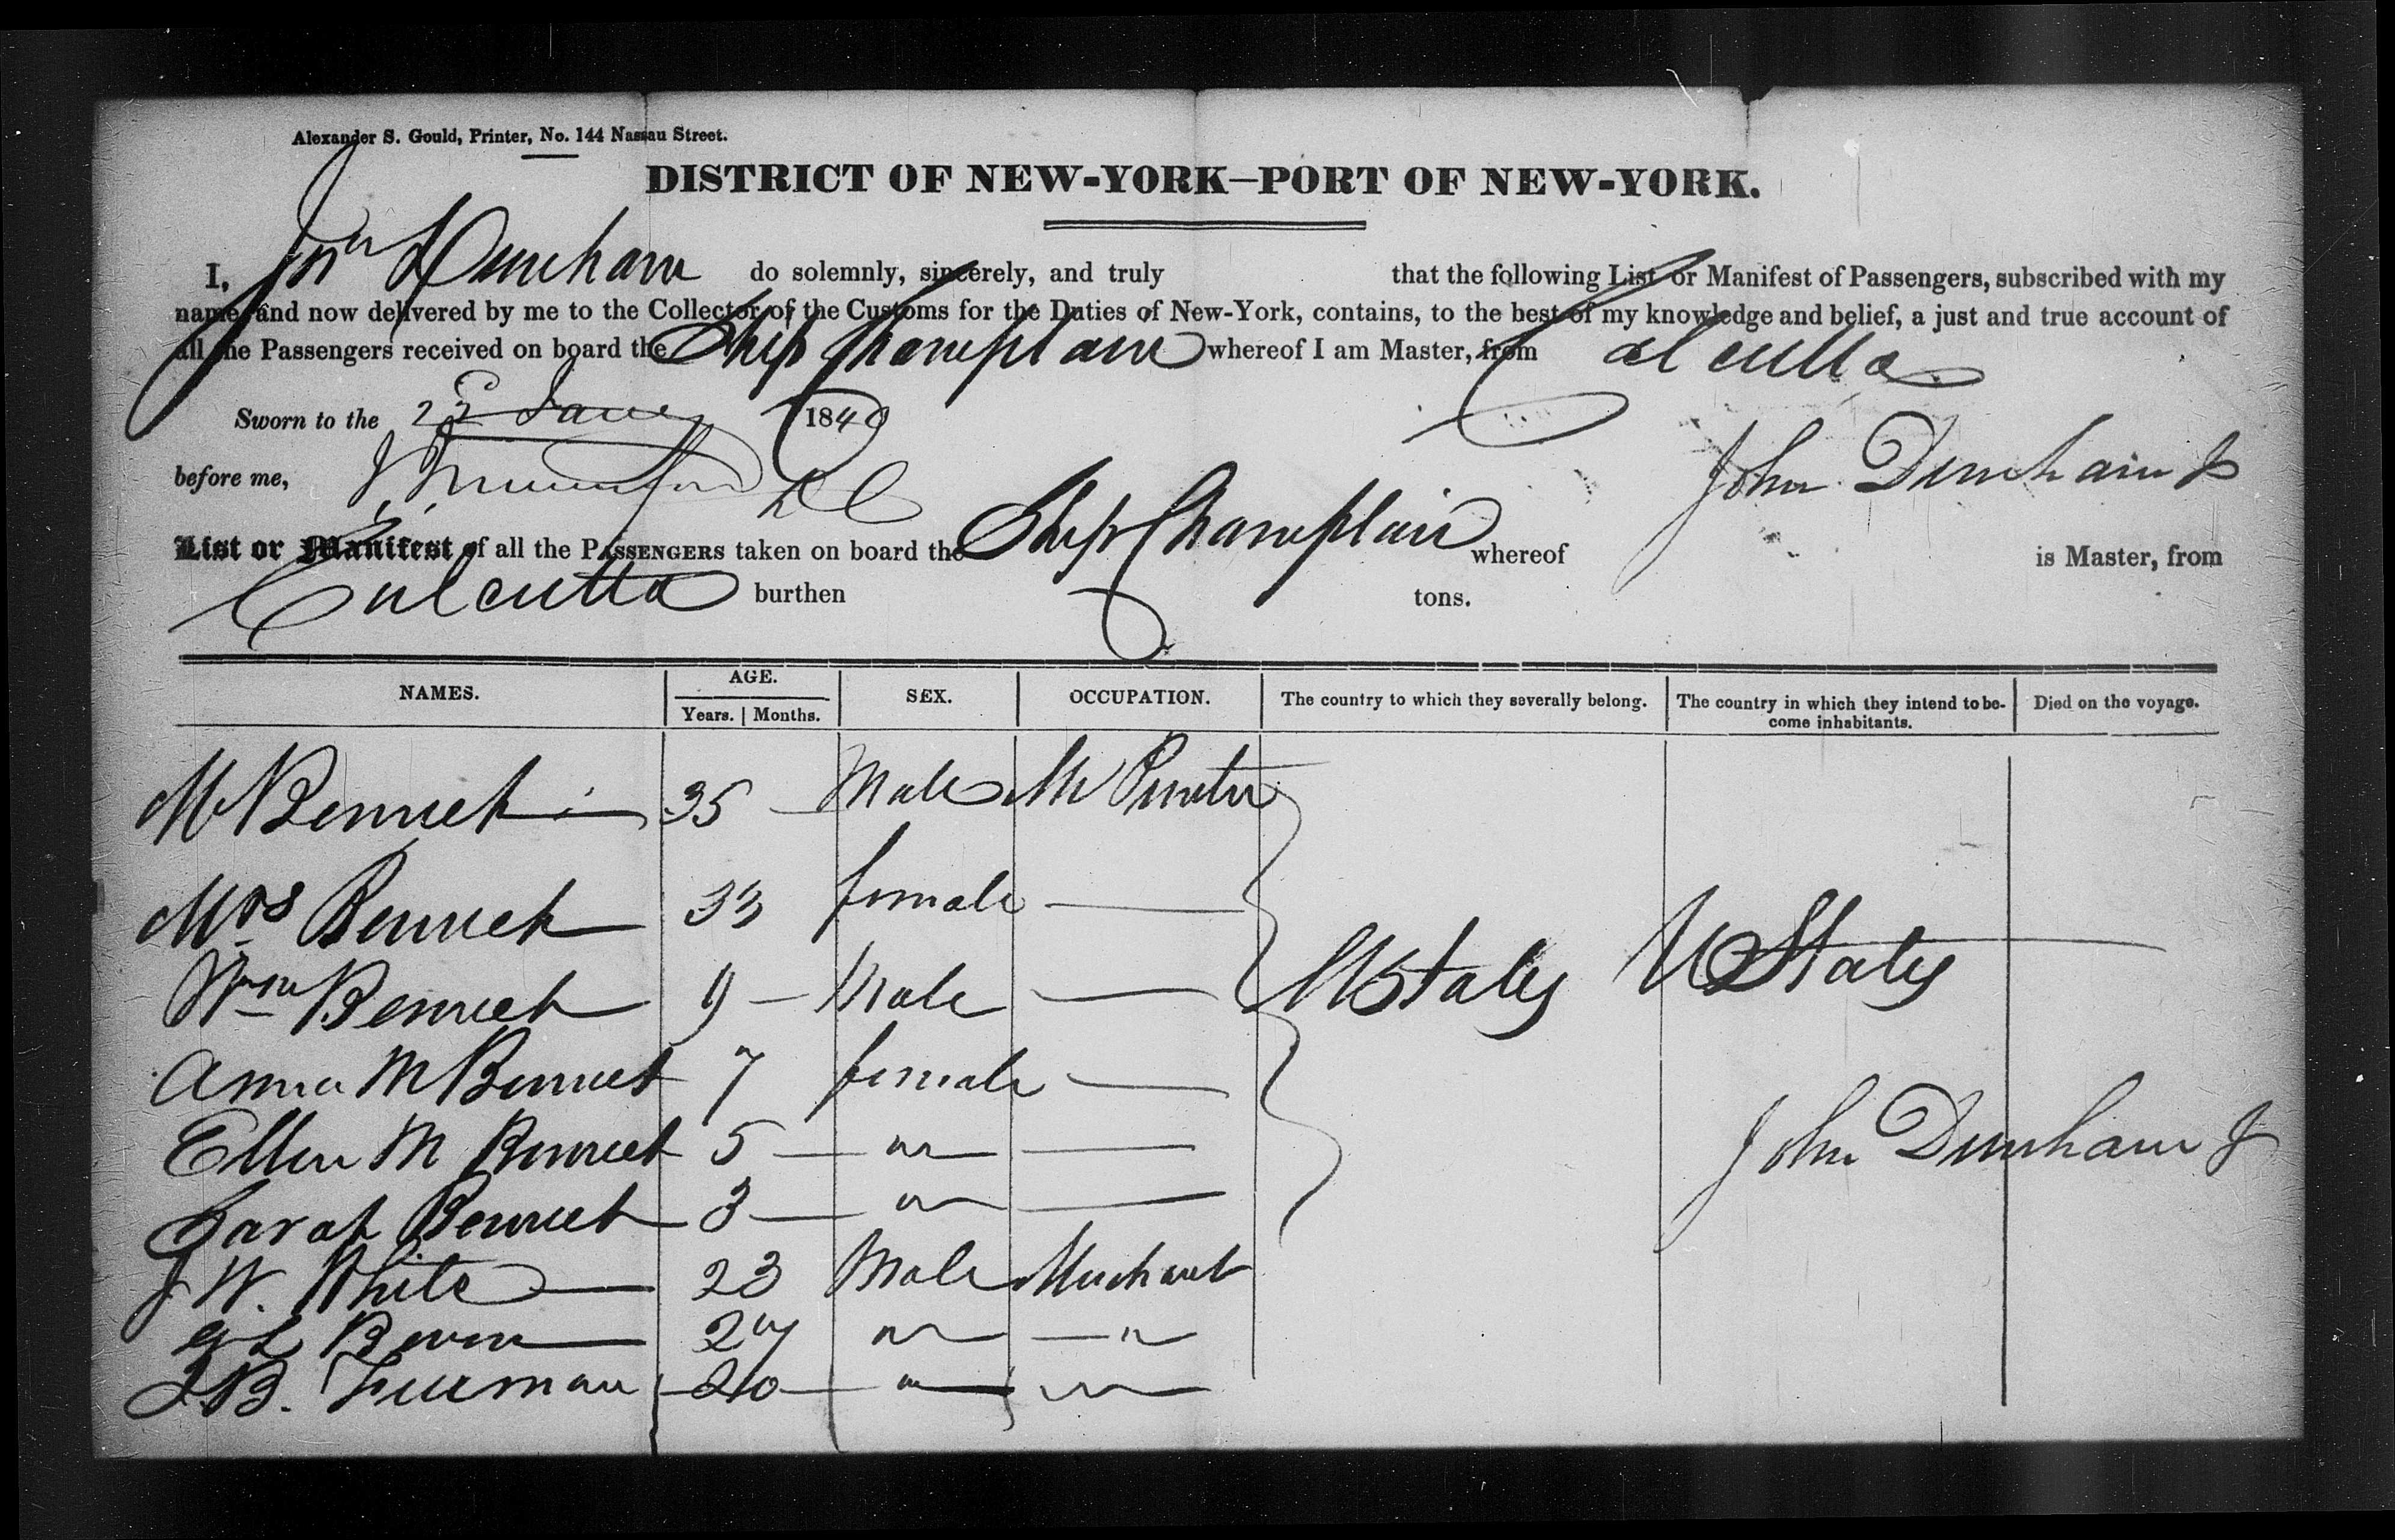 Alexander S. Gould, Printer, No. 144 Nassau Street.
DISTRICT OF NEW-YORK—PORT OF NEW-YORK.
I, Jn Dunham do solemnly, sincerely, and truly that the following List or Manifest of Passengers, subscribed with my
name, and now delivered by me to the Collector of the Customs for the Duties of New-York, contains, to the best of my knowledge and belief, a just and true account of
all the Passengers received on board the Ship Champlain whereof I am Master, from Calcutta
Sworn to the 23 1840
before me, John Dunham Jr
List or Manifest of all the PASSENGERS taken on board the Ship Champlain whereof is Master, from
Calcutta burthen tons.
NAMES. AGE. SEX. OCCUPATION. The country to which they severally belong. The country in which they intend to be- Died on the voyage.
Years. Months. come inhabitants.
Mr Bennett 35 Male Printer
Mrs Bennett 33 female
Wm Bennett 9 Male
Anna M Bennett 7 female
U States U States
Ellen M Bennett 5 "
Sarah Bennett 3 "
John Dunham Jr
J W. White 23 Male Merchant
27 " "
J.B. 20 " "